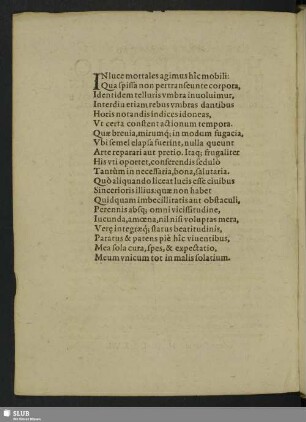 IN luce mortales agimus hîc mobili:
Qua spissa non pertranseunte corpora,
Identidem telluris vmbra inuoluimur,
Interdiu etiam, rebus vmbras dantibus
Horis notandis indices idoneas,
Vt certa constent actionum tempora.
Quæ breuia, mirumq; in modum fugacia,
Vbi semel elapsa fuerint, nulla queunt
Arte reparari aut pretio. Itaq; frugaliter
His vti oportet, conferendis sedulo
Tantùm in necessaria, bona, salutaria.
Quò aliquando liceat lucis esse ciuibus
Sincerioris illius, quæ non habet
Quidquam imbecillitatis aut obstaculi,
Perennis absq; omni vicissitudine,
Iucunda, amœna, nil nisi voluptas mera,
Veræ integræq; status beatitudinis,
Paratus & patens piè hîc viuentibus,
Mea sola cura, spes, & expectatio,
Meum vnicum tot in malis solatium.
SLUB